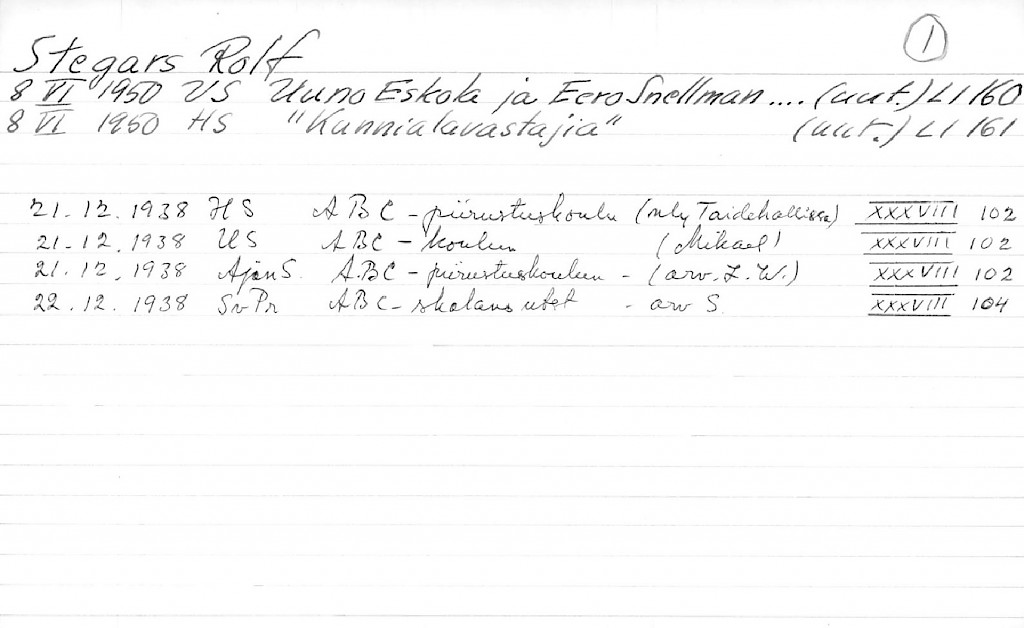 1
Stegars Rolf
8 VI 1950 US Uuno Eskola ja Eero Snellman .... (uut.) LI 160
8 VI 1950 HS "Kunnialavastajia" (uut.) LI 161
21.12.1938 HS ABC-piirustuskoulu (näy Taidehallissa) XXXVIII 102
21.12.1938 US ABC-koulun (Mikael) XXXVIII 102
21.12.1938 Ajan S. ABC-piirustuskoulun - (arv. L.W.) XXXVIII 102
22.12.1938 Sv Pr ABC-skolans utst - arv S. XXXVIII 104